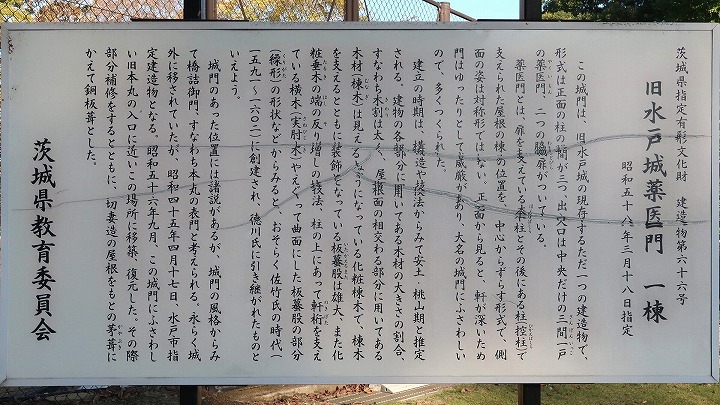 茨城県指定有形文化財 建造物第六十六号
旧水戸城薬医門 一棟
昭和五十八年三月十八日指定
この城門は、旧水戸城の現存するただ一つの建造物で、
形式は正面の柱の間が三つ、出入口は中央だけの三間一戸
の薬医門、二つの脇扉がついている。
薬医門とは、扉を支えている本柱とその後にある柱(控柱)で
支えられた屋根の棟の位置を、中心からずらす形式で、側
面の姿は対称形ではない。正面から見ると、軒が深いため
門はゆったりとして威厳があり、大名の城門にふさわしい
ので、多くつくられた。
建立の時期は、構造や技法からみて安土・桃山期と推定
される。建物の各部分に用いてある木材の大きさの割合、
すなわち木割は太く、屋根面の相交わる部分に用いてある
木材(棟木)は見えるようになっている化粧棟木で、棟木
を支えるとともに装飾となっている板蟇股は雄大、また化
粧垂木の端の反り増しの技法、柱の上にあって軒桁を支え
ている横木(実肘木)やえぐって曲面にした板蟇股の部分
(繰形)の形状などからみると、おそらく佐竹氏の時代(一
五九一〜一六〇二)に創建され、徳川氏に引き継がれたものと
いえよう。
城門のあった位置には諸説があるが、城門の風格からみ
て橋詰御門、すなわち本丸の表門と考えられる。永らく城
外に移されていたが、昭和四十五年四月十七日、水戸市指
定建造物となる。昭和五十六年九月、この城門にふさわし
い旧本丸の入口に近いこの場所に移築、復元した。その際
部分補修をするとともに、切妻造の屋根をもとの茅葺に
かえて銅板葺とした。
茨城県教育委員会